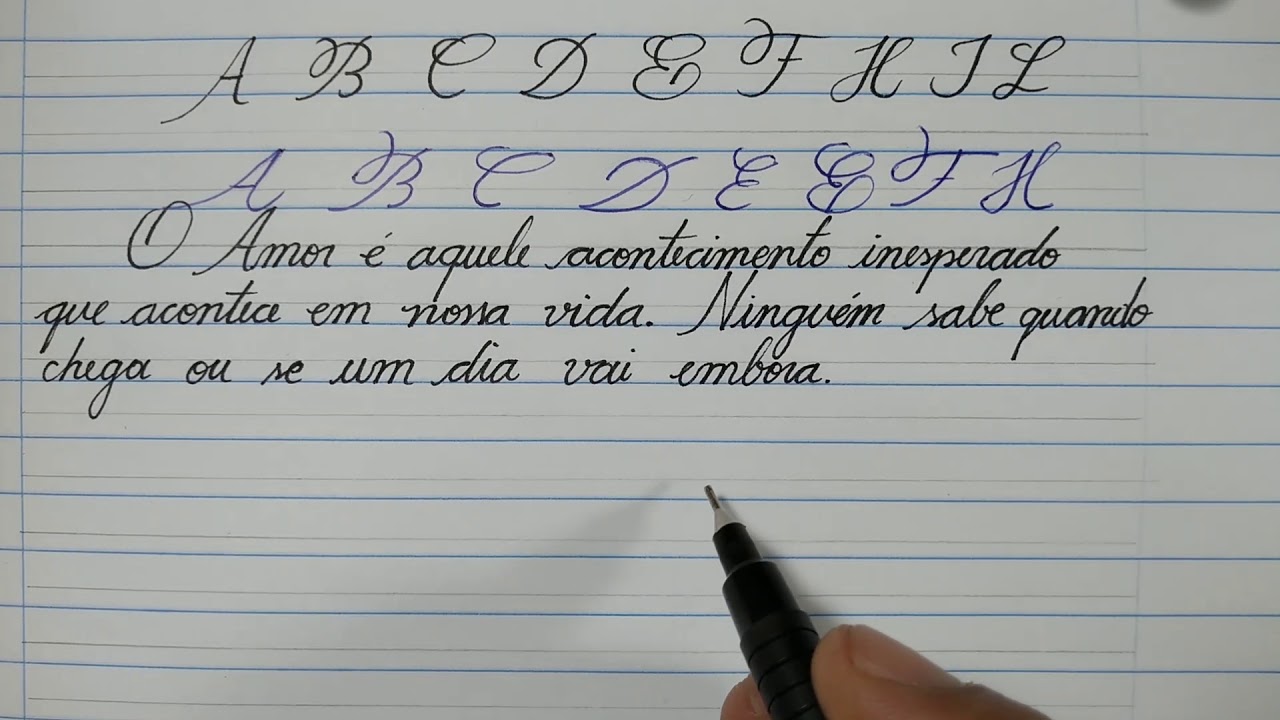 A B C D E F H I L
A B C D E E F H
O Amor é aquele acontecimento inesperado
que acontece em nossa vida. Ninguém sabe quando
chega ou se um dia vai embora.